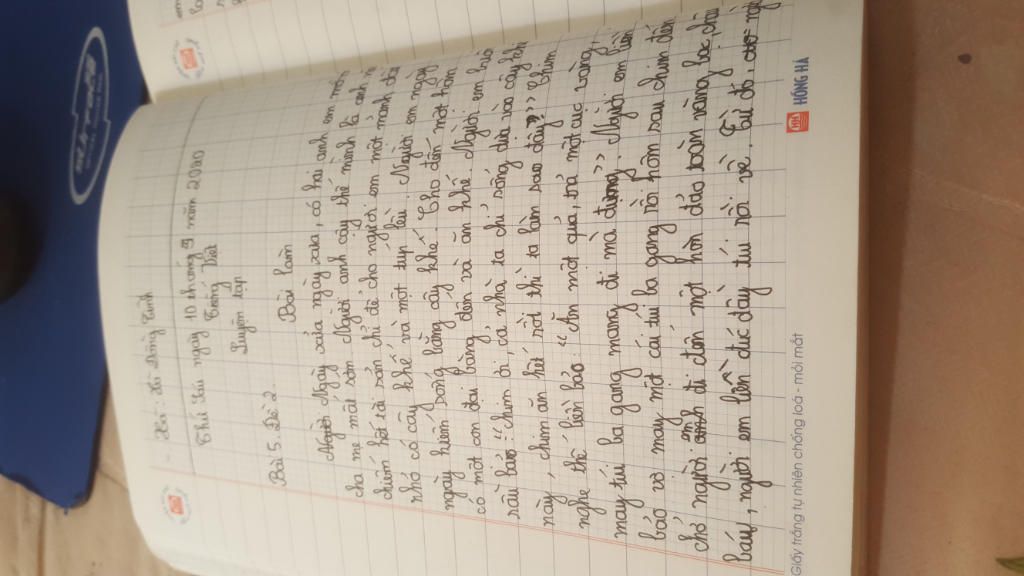 Thứ Sáu ngày 10 tháng 9 năm 2080
Tiếng Việt
Luyện tập
Bài 5. Đề 2. Bài làm
Người Ngày xửa ngày xưa, có hai anh em
cha mẹ mất sớm. Người anh cậy thế mình là anh
chiếm hết tài sản chỉ để cho người em một mảnh
nhỏ có cây khế và một túp lều. Người em ngày
ngày kiếm sống bằng cây khế. Cho đến một hôm
có một con đại bàng đến và ăn khế. Người em
rầu bảo: “Chim ơi, cả nhà ta chỉ sống dựa vào cây
này, chim ăn hết rồi thì ta làm sao đây?” Chim
nghe thế liền bảo: “Ăn một quả, trả một cục vàng,
may túi ba gang mang đi mà đựng”. Người em liền
bảo vợ may một cái túi ba gang rồi hôm sau chim đến
chở người anh em đi đến một hòn đảo toàn vàng bạc, châu
báu, người em liền đúc đầy túi rồi về. Từ đó,
Giấy trắng tự nhiên chống loá - mỏi mắt
HỒNG HÀ